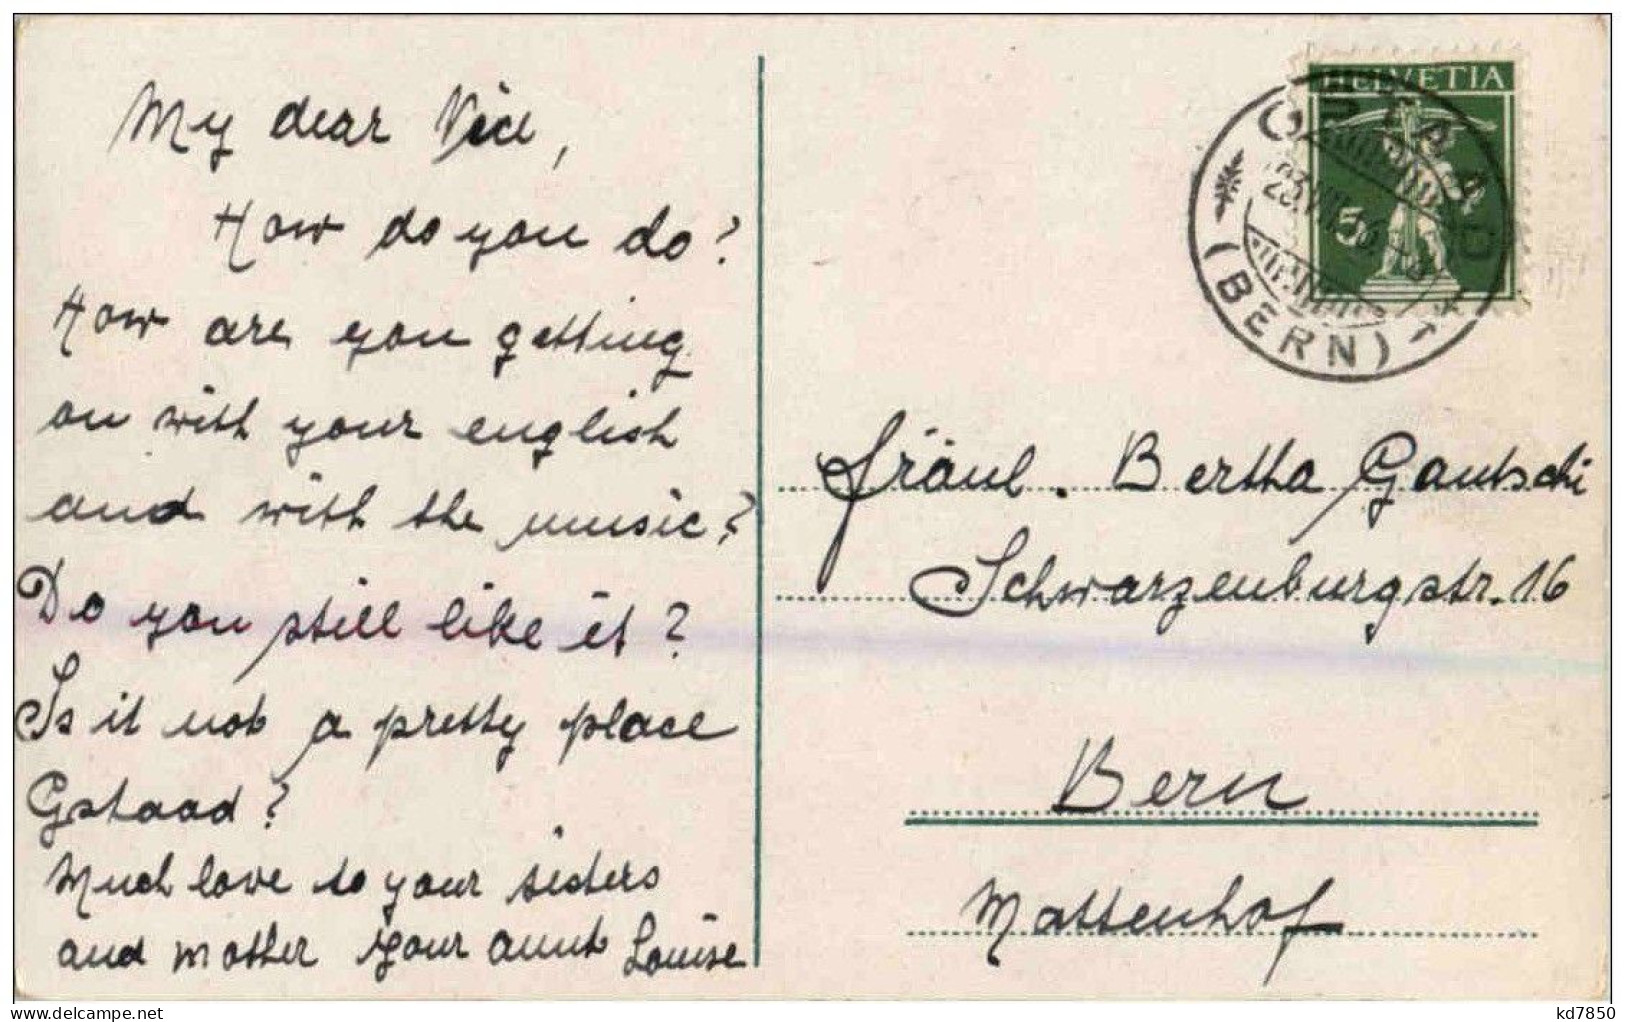 My dear Nice,
How do you do?
How are you getting
on with your english
and with the music?
Do you still like it?
Is it not a pretty place
Gstaad?
Much love to your sisters
and mother your aunt Louise
HELVETIA
5
GSTAAD
(BERN)
Fräul. Bertha Gautschi
Schwarzenburgstr. 16
Bern
Mattenhof
kd7850